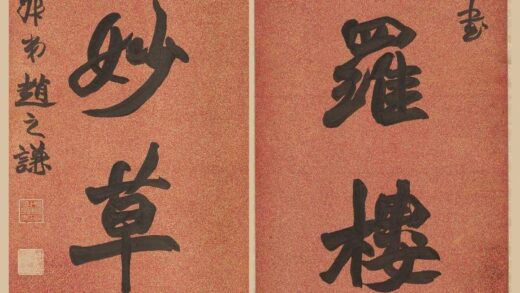 書
羅樓
妙草
弟趙之謙